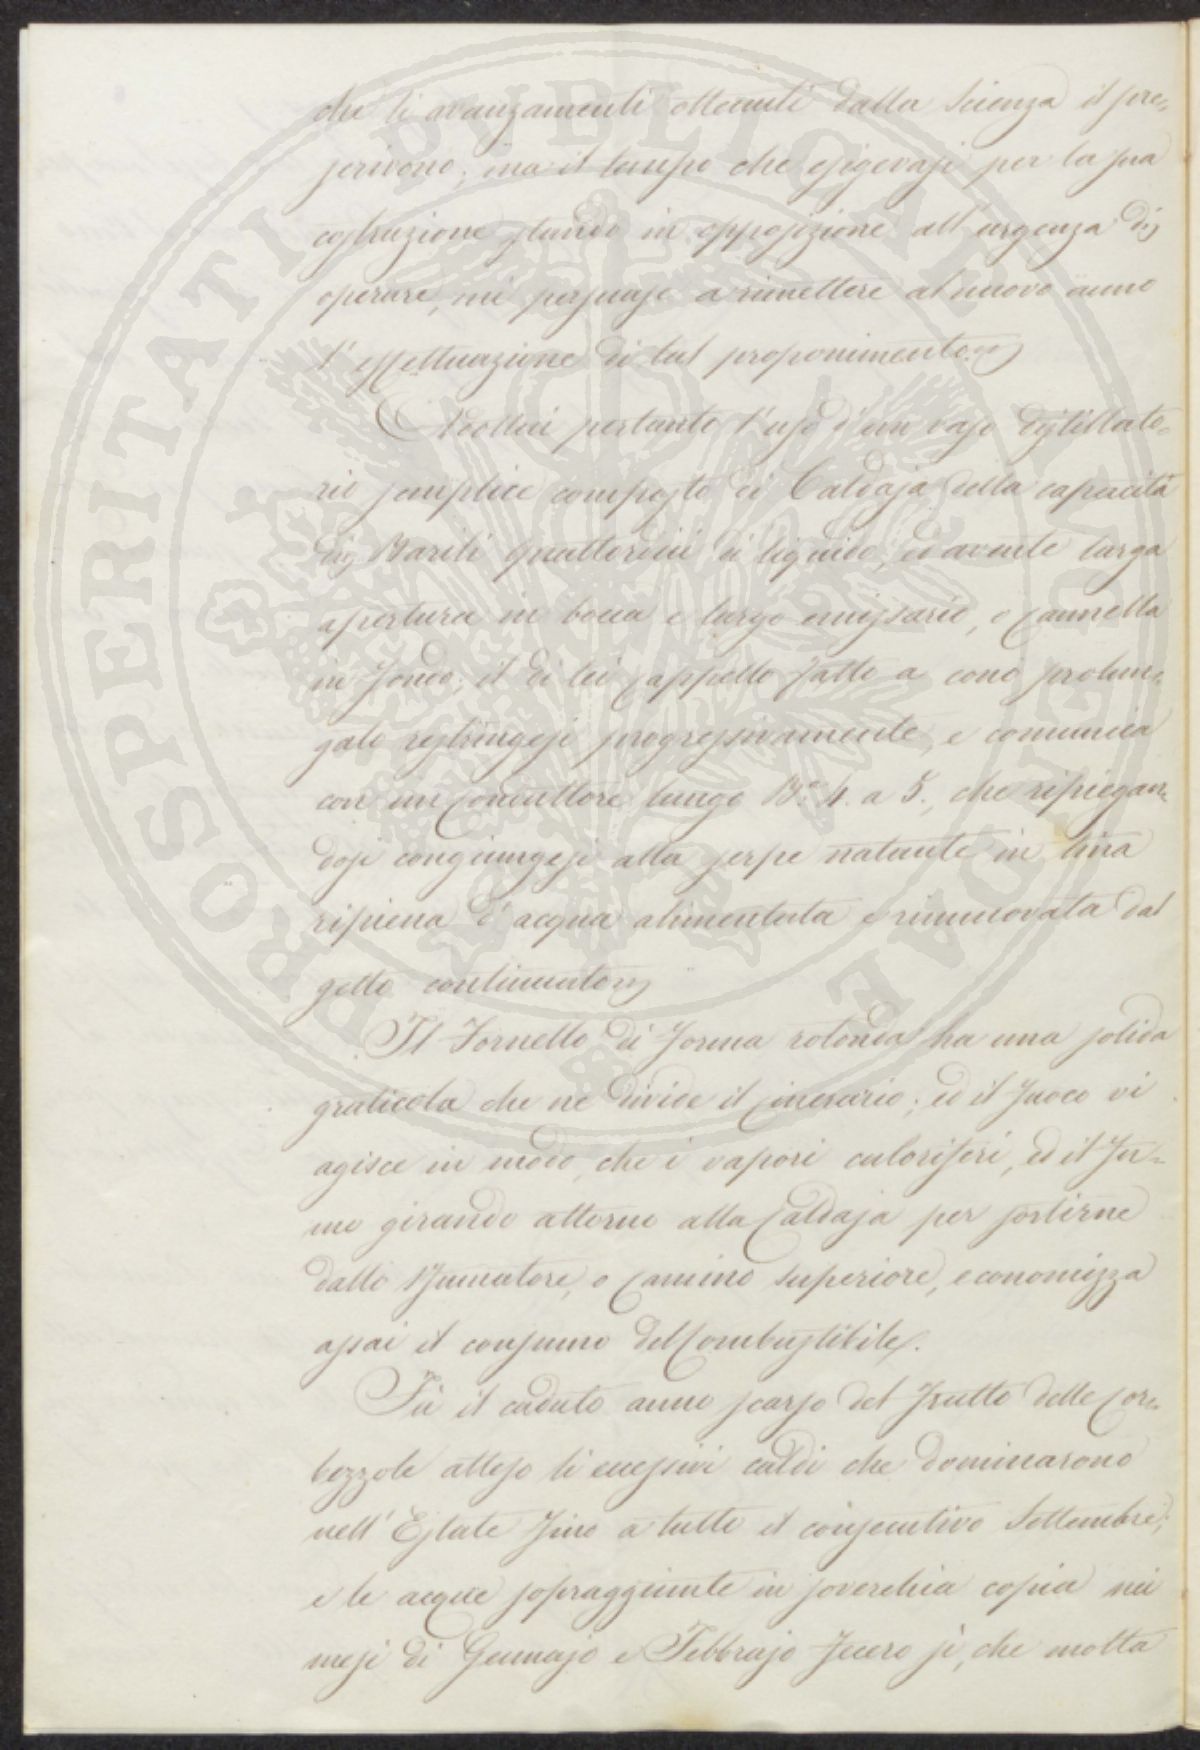 che li avanzamenti ottenuti dalla Scienza il pre=
scrivono; ma il tempo che esigevasi per la sua
costruzione stando in opposizione all'urgenza di
operare, mi persuase a rimettere al nuovo anno
l'effettuazione di tal proponimento.
Adottai pertanto l'uso d'un vaso distillato=
rio semplice composto di Caldaja della capacità
di Barili quattordici di liquido, ed avente larga
apertura in bocca e largo emissario, o Cannella
in fondo; il di lei Cappello fatto a cono prolun=
gato restringesi progressivamente, e comunica
con un Conduttore lungo B.a 4. a 5., che ripiegan=
dosi congiungesi alla serpe natante in tina
ripiena d'acqua alimentata e rinnuovata dal
getto continuato
Il Fornello di forma rotonda ha una solida
graticola che ne divide il Cinerario; ed il fuoco vi
agisce in modo, che i vapori caloriferi, ed il fu=
mo girando attorno alla Caldaja per sortirne
dallo sfumatore, o Camino superiore, economizza
assai il consumo del Combustibile.
Fù il caduto anno scarso del frutto delle Cor=
bezzole atteso li eccessivi caldi che dominarono
nell'Estate fino a tutto il consecutivo Settembre;
e le acque sopraggiunte in soverchia copia nei
mesi di Gennajo e Febbrajo fecero sì, che molta
PROSPERITATI PUBLICAE AUGENDAE